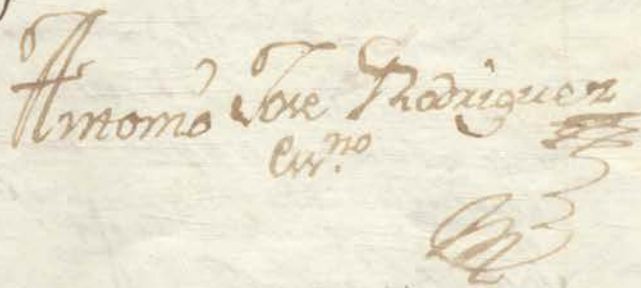 Antonio Jose Rodriguez
Ess.no